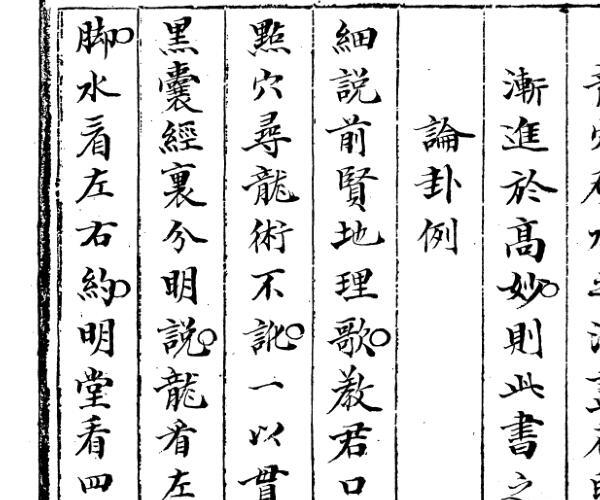 漸進於高妙○則此書之
論卦例
細說前賢地理歌○教君口
點穴尋龍術不訛○一以貫
黑囊經裏分明說○龍看左
脚○水看左右約○明堂看四